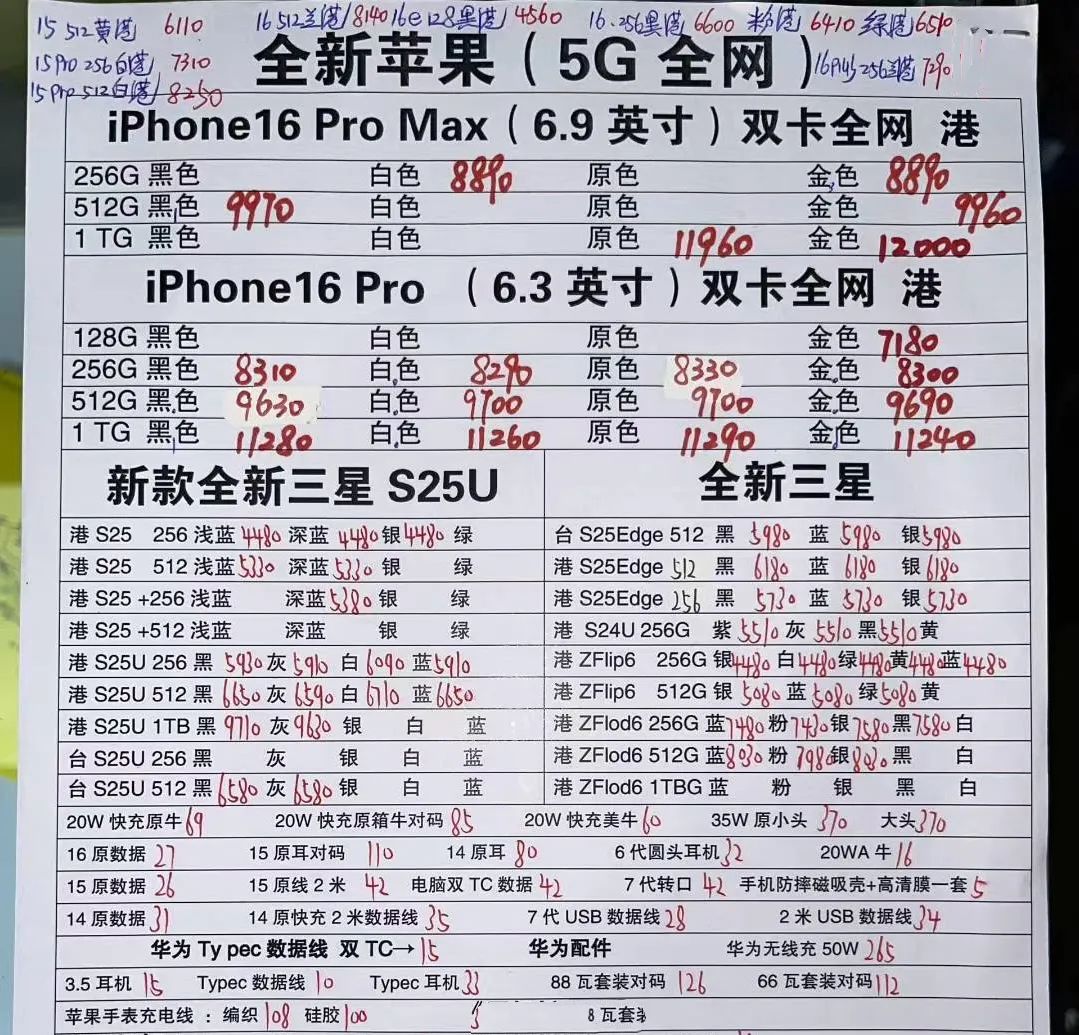 15 512黄港 6110 16 512兰港 8140 16e 128黑港 4560 16.256黑港 6600 粉港 6410 绿港 6510
15Pro 256白港 7310 16Plus 256兰港 7290
15Pro 512白港 8250
全新苹果（5G 全网）
iPhone16 Pro Max（6.9 英寸）双卡全网 港
256G 黑色 白色 8890 原色 金色 8890
512G 黑色 9970 白色 原色 金色 9960
1 TG 黑色 白色 原色 11960 金色 12000
iPhone16 Pro （6.3 英寸）双卡全网 港
128G 黑色 白色 原色 金色 7180
256G 黑色 8310 白色 8290 原色 8330 金色 8300
512G 黑色 9630 白色 9700 原色 9700 金色 9690
1 TG 黑色 11280 白色 11260 原色 11290 金色 11240
新款全新三星 S25U 全新三星
港 S25 256 浅蓝 4480 深蓝 4480 银 4480 绿 台 S25Edge 512 黑 5980 蓝 5980 银 5980
港 S25 512 浅蓝 5330 深蓝 5330 银 绿 港 S25Edge 512 黑 6180 蓝 6180 银 6180
港 S25 +256 浅蓝 深蓝 5380 银 绿 港 S25Edge 256 黑 5730 蓝 5730 银 5730
港 S25 +512 浅蓝 深蓝 银 绿 港 S24U 256G 紫 5510 灰 5510 黑 5510 黄
港 S25U 256 黑 5930 灰 5910 白 6090 蓝 5910 港 ZFlip6 256G 银 4480 白 4480 绿 4480 黄 4480 蓝 4480
港 S25U 512 黑 6650 灰 6590 白 6710 蓝 6650 港 ZFlip6 512G 银 5080 蓝 5080 绿 5080 黄
港 S25U 1TB 黑 9710 灰 9630 银 白 蓝 港 ZFlod6 256G 蓝 7480 粉 7430 银 7580 黑 7580 白
台 S25U 256 黑 灰 银 白 蓝 港 ZFlod6 512G 蓝 8030 粉 7980 银 8030 黑 白
台 S25U 512 黑 6580 灰 6580 银 白 蓝 港 ZFlod6 1TBG 蓝 粉 银 黑 白
20W 快充原牛 69 20W 快充原箱牛对码 85 20W 快充美牛 60 35W 原小头 370 大头 370
16 原数据 27 15 原耳对码 110 14 原耳 80 6 代圆头耳机 32 20WA 牛 16
15 原数据 26 15 原线 2 米 42 电脑双 TC 数据 42 7 代转口 42 手机防摔磁吸壳+高清膜一套 5
14 原数据 31 14 原快充 2 米数据线 35 7 代 USB 数据线 28 2 米 USB 数据线 34
华为 Ty pec 数据线 双 TC→ 15 华为配件 华为无线充 50W 265
3.5 耳机 15 Typec 数据线 10 Typec 耳机 33 88 瓦套装对码 126 66 瓦套装对码 112
苹果手表充电线 ：编织 108 硅胶 100 8 瓦套